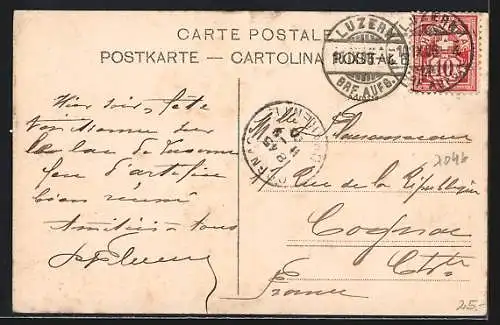 CARTE POSTALE
POSTKARTE — CARTOLINA POSTALE
LUZERN
BRF. AUFG.
10
Hier soir, fête
Vénitienne sur
le lac de Lucerne
feu d'artifice
bien réussi
Amitiés à tous
Mlle
2046
Rue de la République
Cognac
Cte
France
25.-